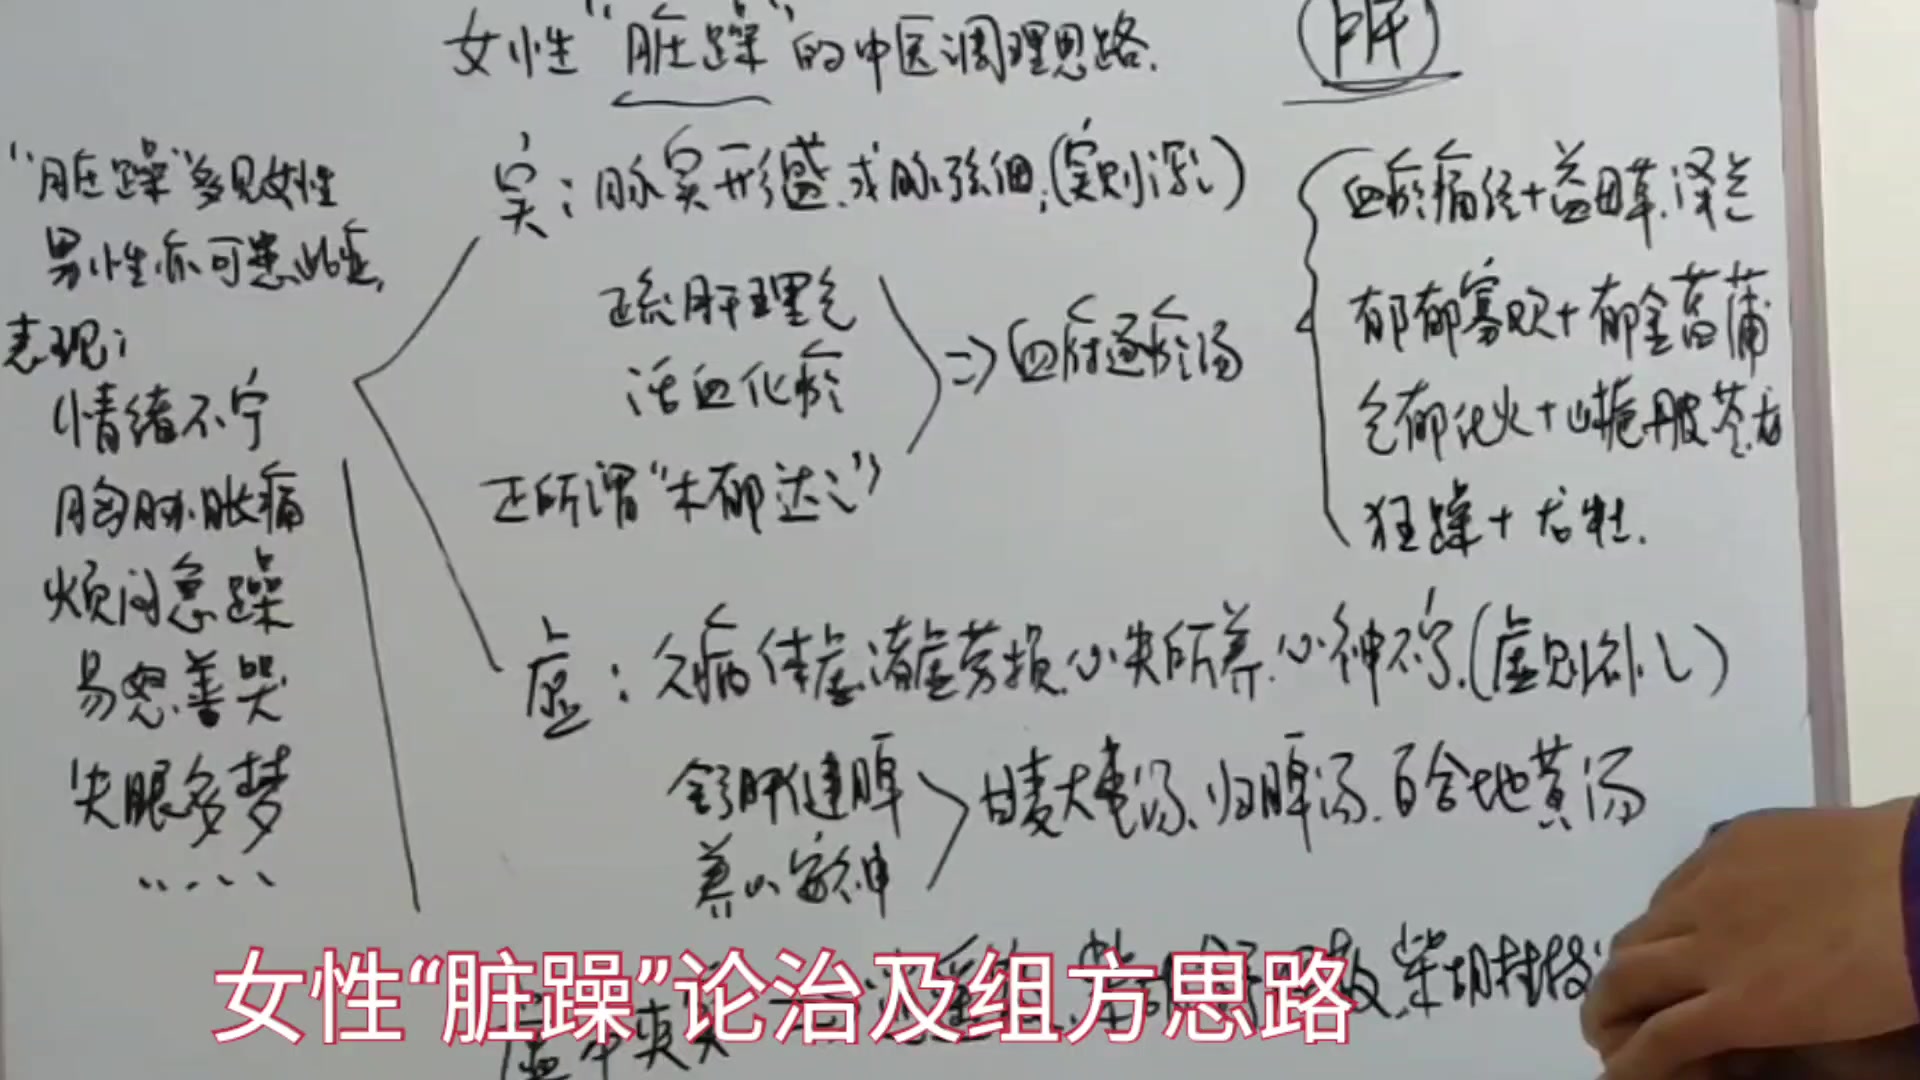 女性“脏躁”的中医调理思路.
肝
“脏躁”多见女性
男性亦可患此症,
表现:
情绪不宁
胸胁胀痛
烦闷急躁
易怒善哭
失眠多梦
.....
实:脉实形盛.或脉弦细,(实则泻之)
疏肝理气
活血化瘀
正所谓“木郁达之”
=>血府逐瘀汤
血瘀痛经+益母草.泽兰
郁郁寡欢+郁金菖蒲
气郁化火+山栀丹皮芩龙
狂躁+龙牡.
虚:久病体虚.诸虚劳损.心失所养.心神不宁.(虚则补之)
舒肝健脾
养心安神
甘麦大枣汤、归脾汤.百合地黄汤
虚中夹实
散.柴胡桂枝
女性“脏躁”论治及组方思路